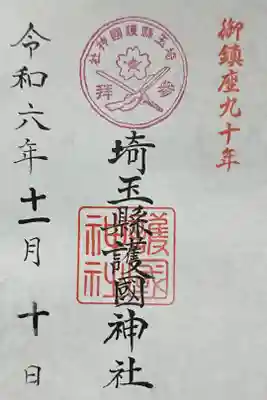 御鎮座九十年
埼玉縣護國神社
参拜
埼玉縣護國神社
護國神社
令和六年十一月十日